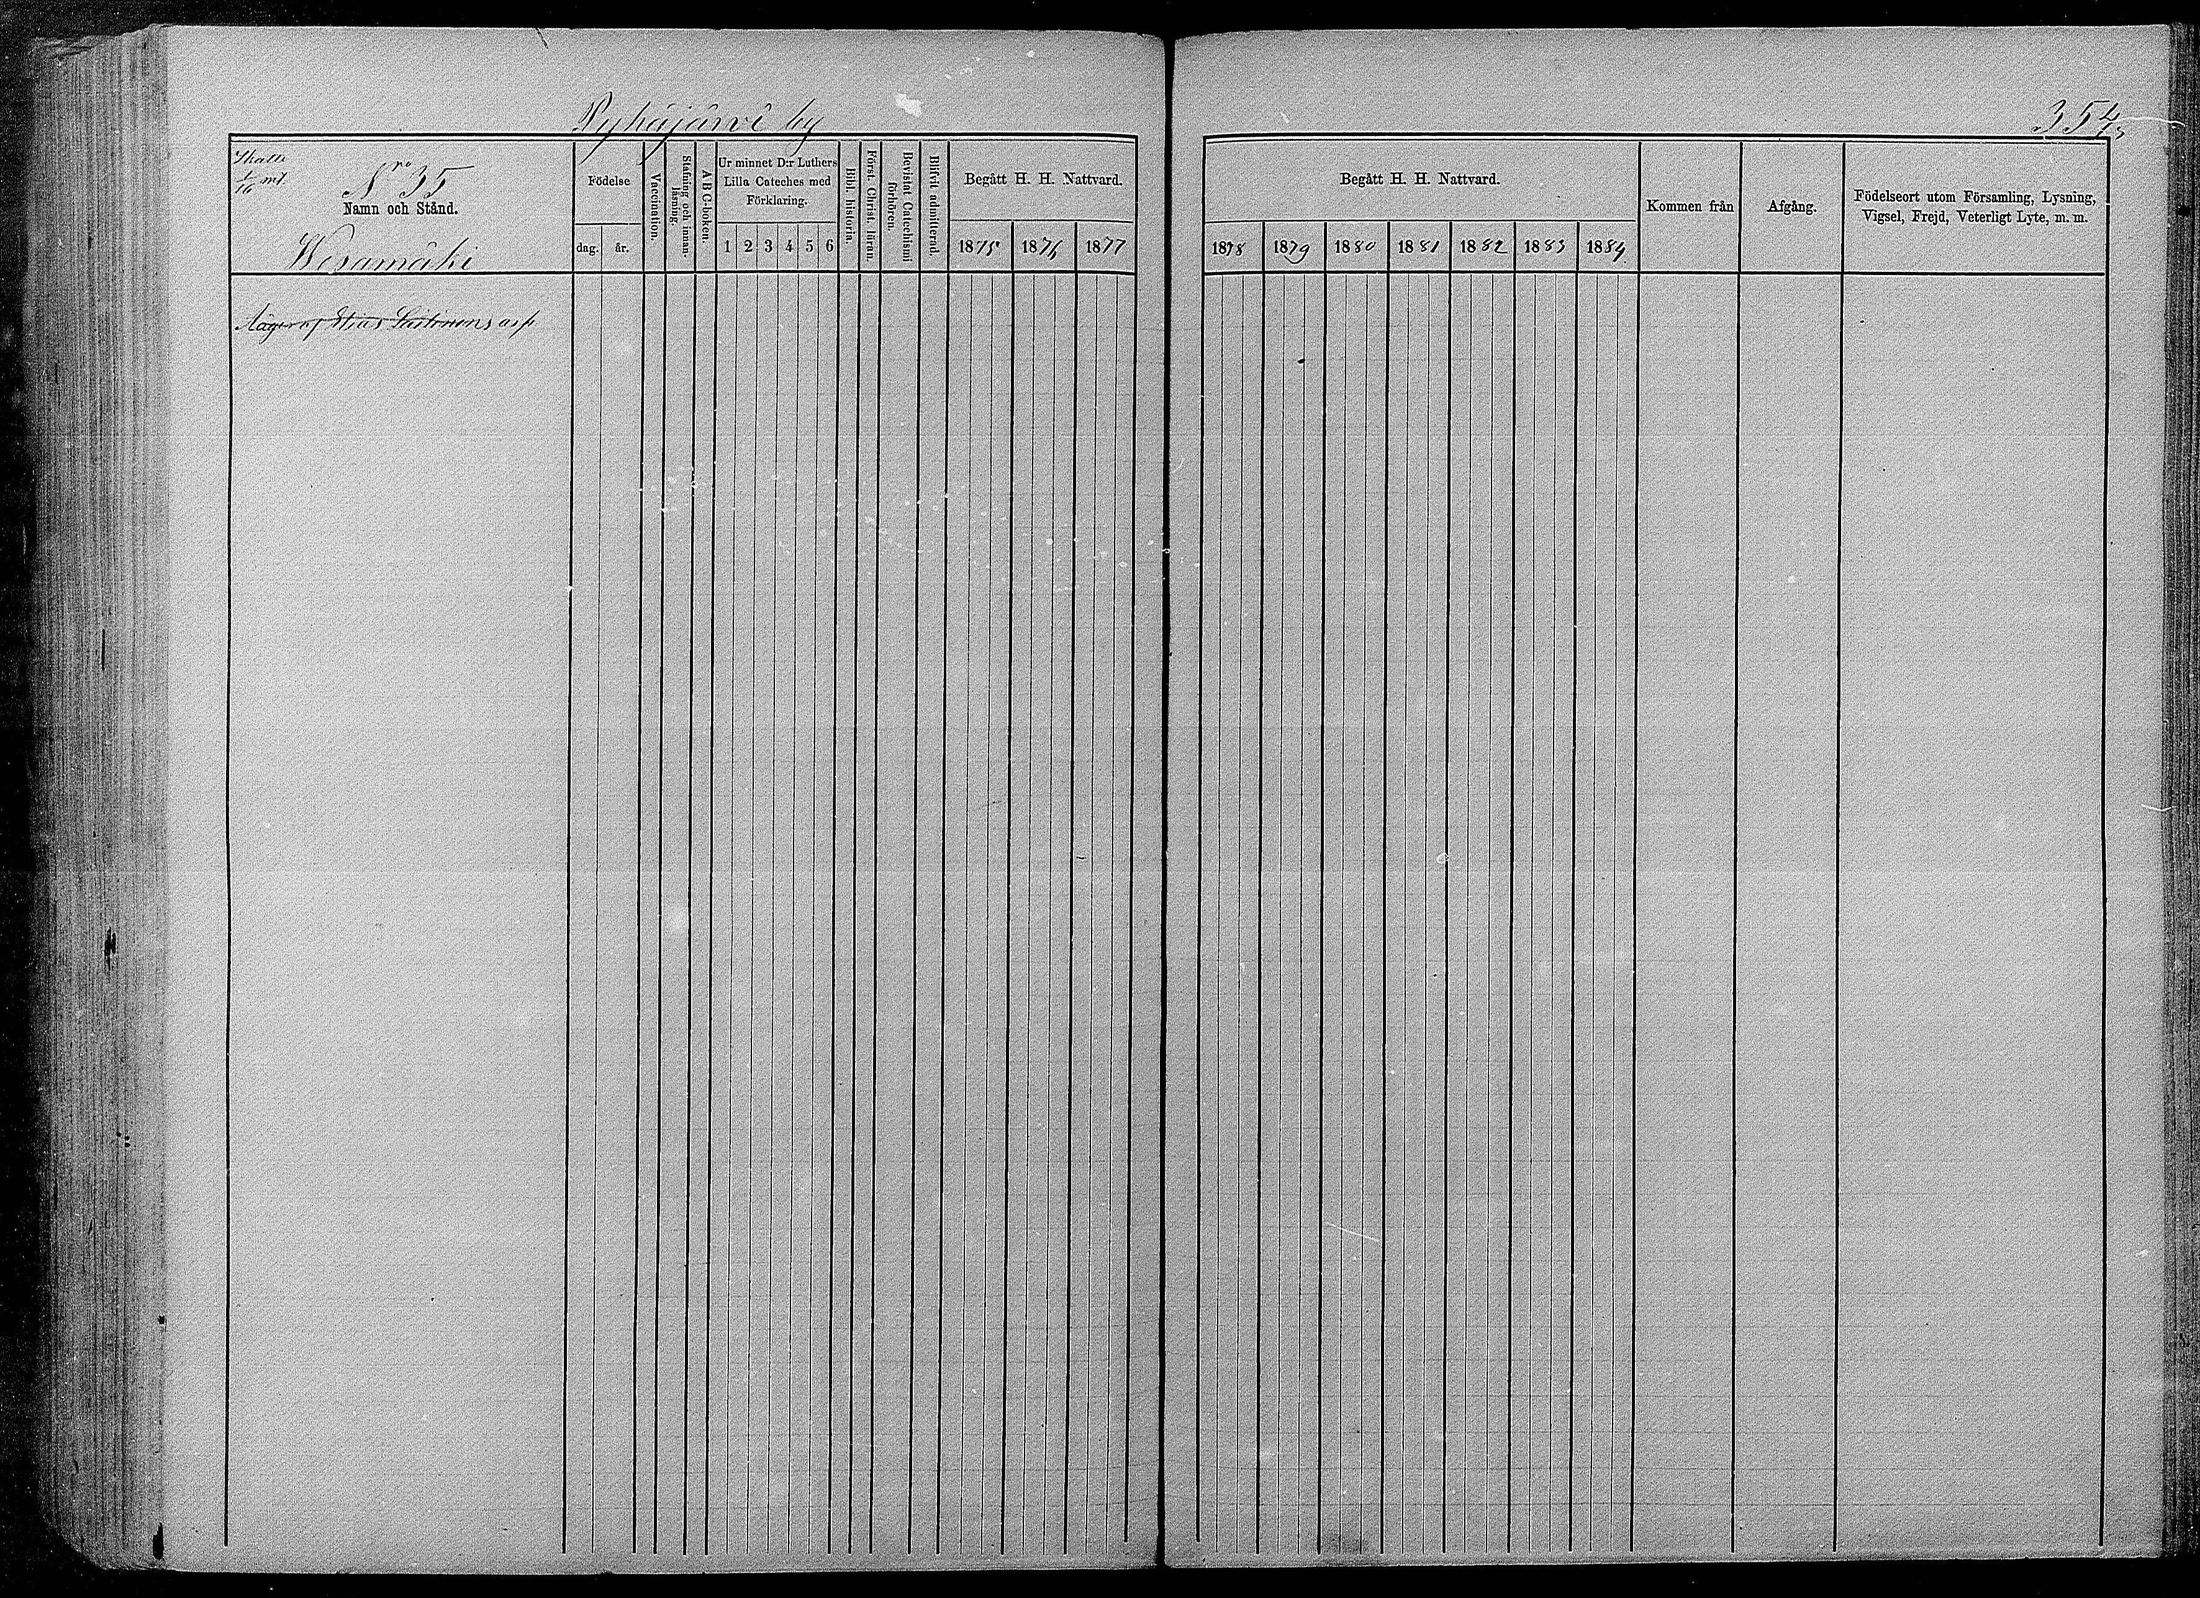 Pyhäjärvi by
354
Skatt
1/16 mt
Nro 35
Namn och Stånd.
Wesamäki
Födelse
dag. år.
Vaccination.
Stafning och innanläsning.
A B C-boken.
Ur minnet D:r Luthers
Lilla Cateches med
Förklaring.
1 2 3 4 5 6
Bibl. historia.
Först. Christ. läran.
Bevistat Catechismi
förhören.
Blifvit admitterad.
Begått H. H. Nattvard.
1875 1876 1877
Begått H. H. Nattvard.
1878 1879 1880 1881 1882 1883 1884
Kommen från
Afgång.
Födelseort utom Församling, Lysning,
Vigsel, Frejd, Veterligt Lyte, m. m.
Äges af Elias